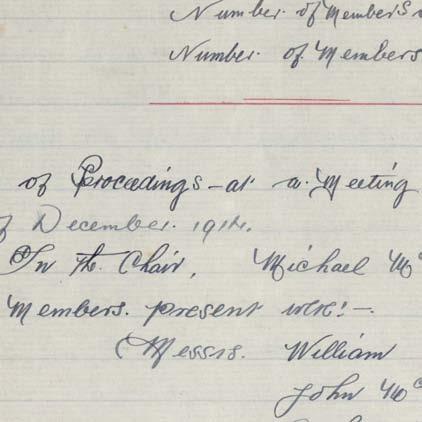 Number of Members
Number of Members
of Proceedings - at a Meeting
of December 1914.
In the Chair, Michael Mc
Members present were: -
Messrs. William
John Mc